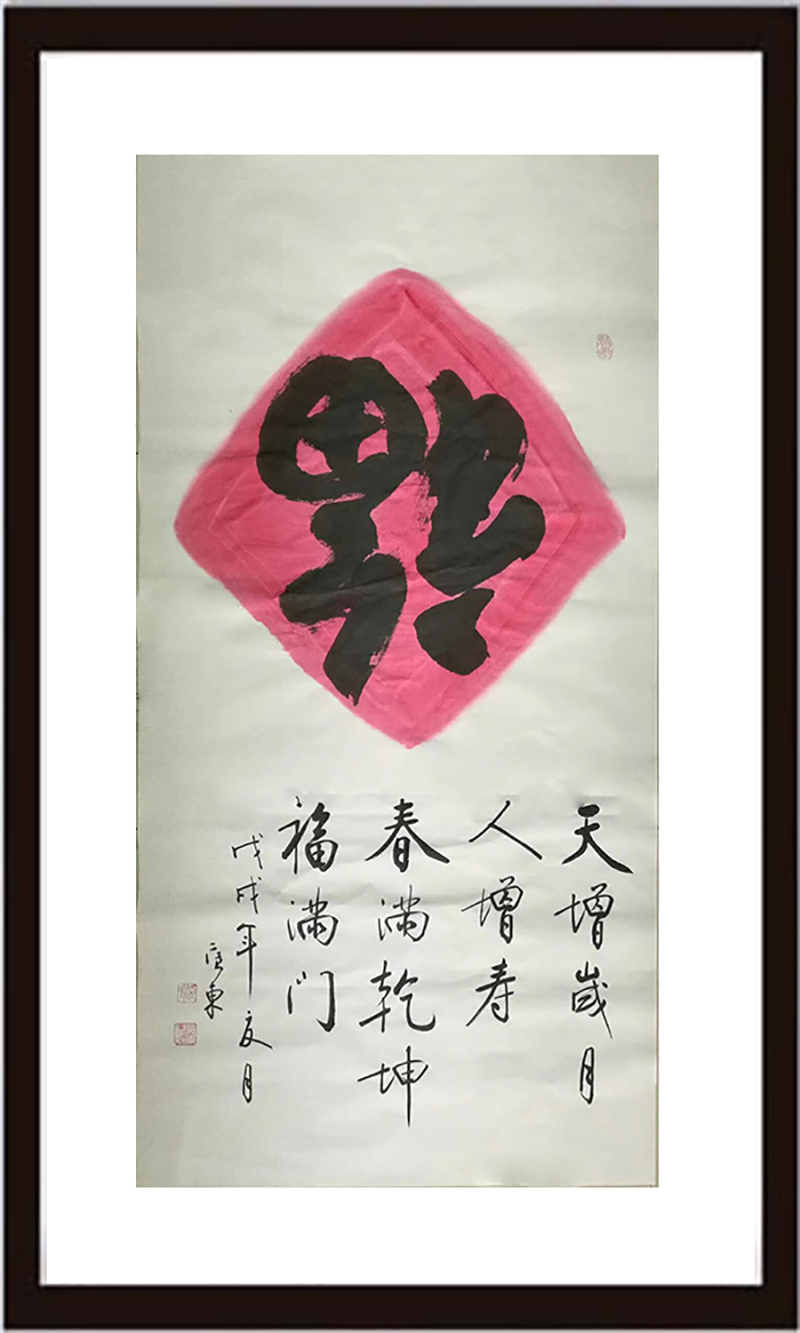 福
天增歲月
人增寿
春满乾坤
福满门
戊戌年月
東